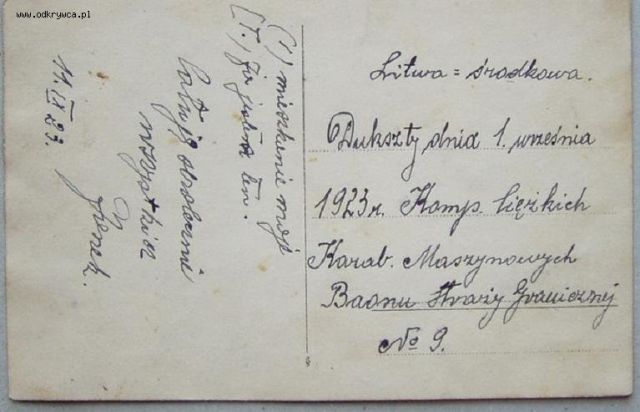 www.odkrywca.pl
(1) mieszkanie moje
(T.) Ja jestem ten.
Całuję
wszystkich
Franek.
11.IX 23.
Litwa = środkowa.
Dukszty dnia 1. września
1923 r. Komp. Ciężkich
Karab. Maszynowych
Baonu Straży Granicznej
No 9.